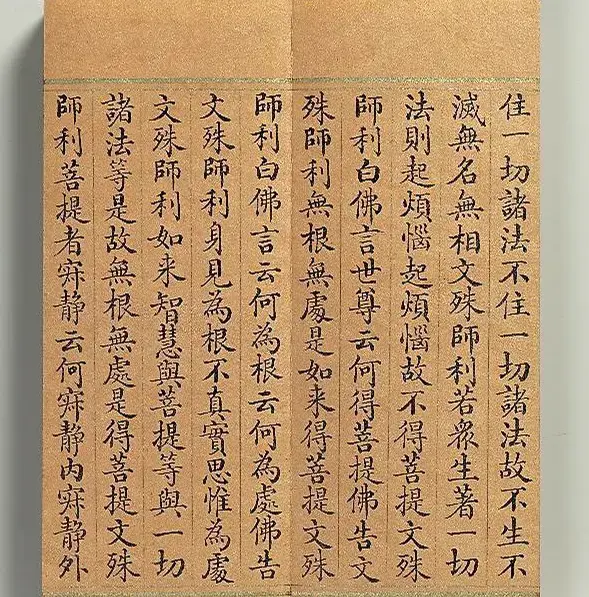 住一切諸法不住一切諸法故不生不
滅無名無相文殊師利若衆生著一切
法則起煩惱起煩惱故不得菩提文殊
師利白佛言世尊云何得菩提佛告文
殊師利無根無處是如来得菩提文殊
師利白佛言云何為根云何為處佛告
文殊師利身見為根不真實思惟為處
文殊師利如来智慧與菩提等與一切
諸法等是故無根無處是得菩提文殊
師利菩提者寂静云何寂静内寂静外